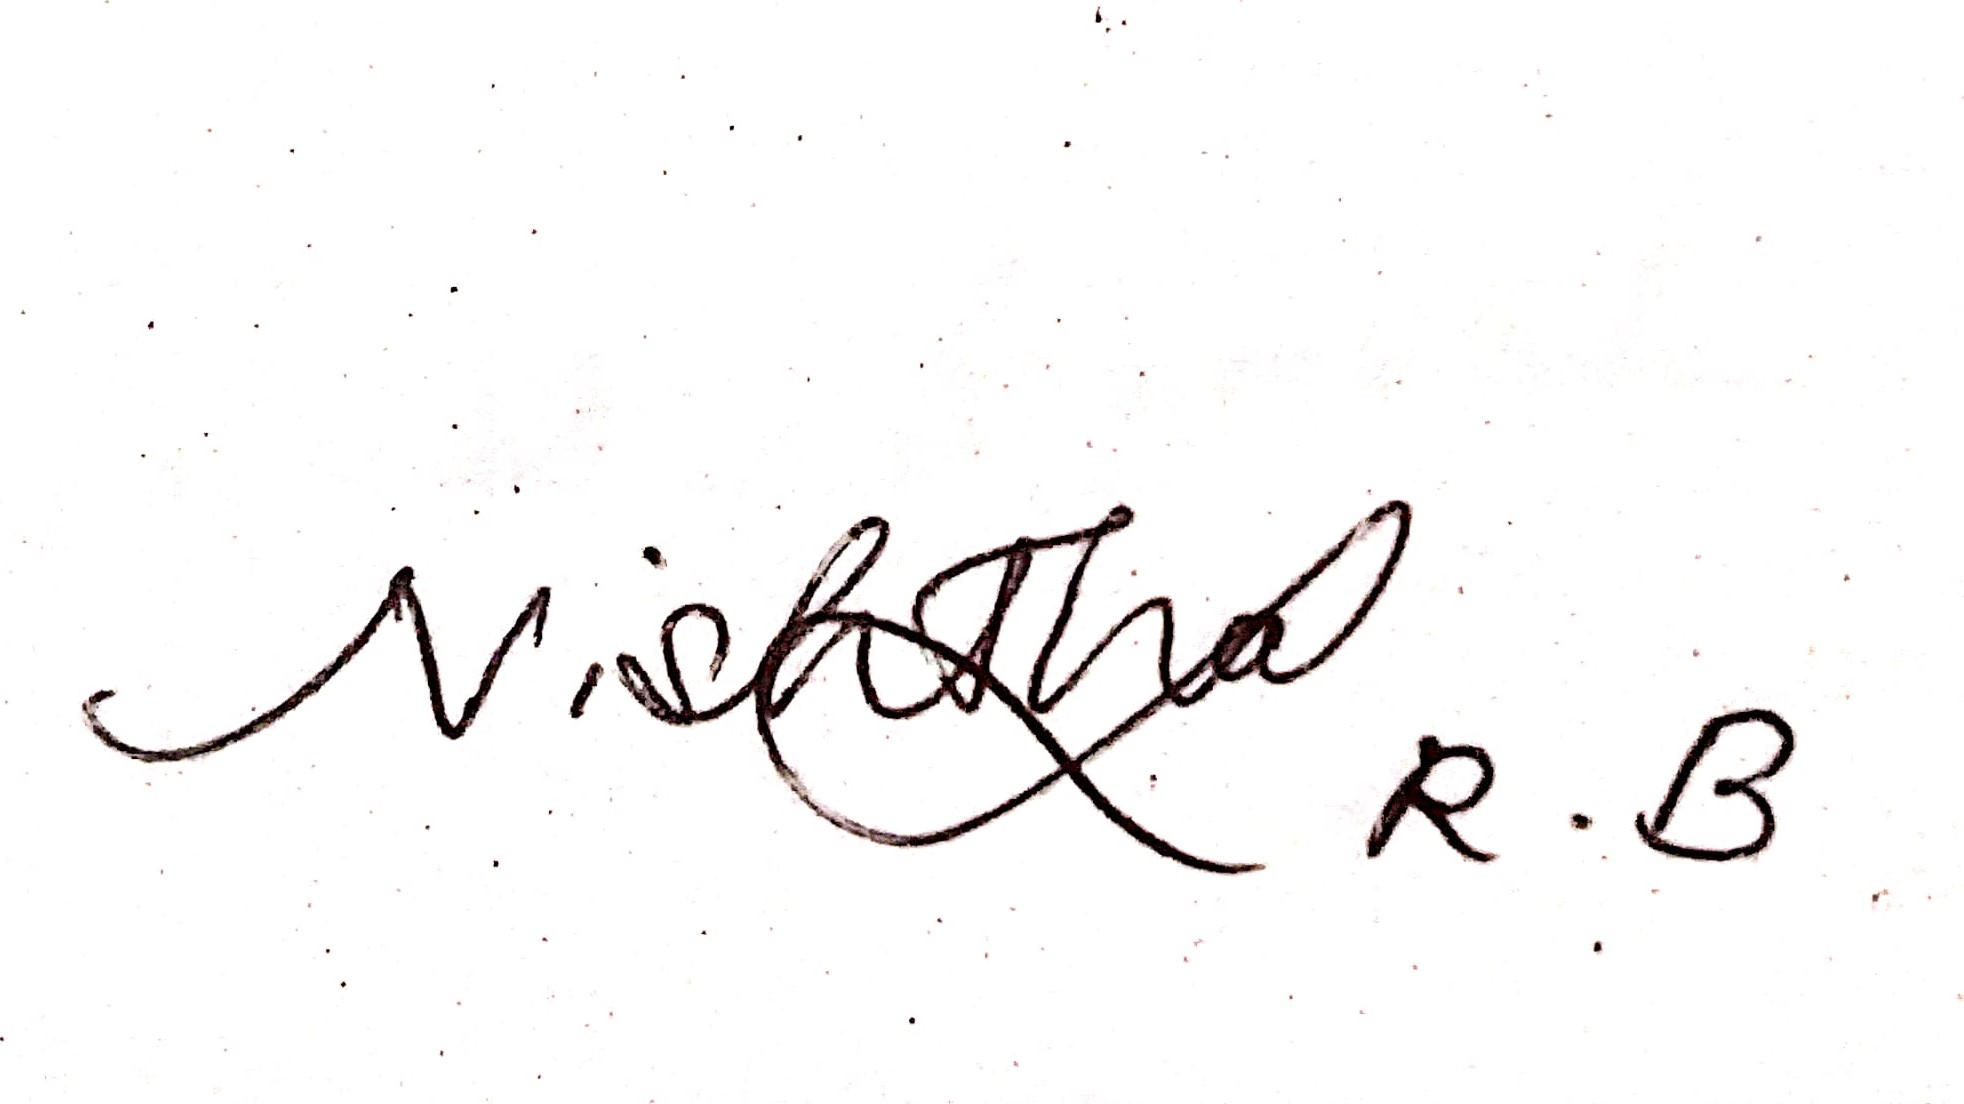 Nishtha
R.B